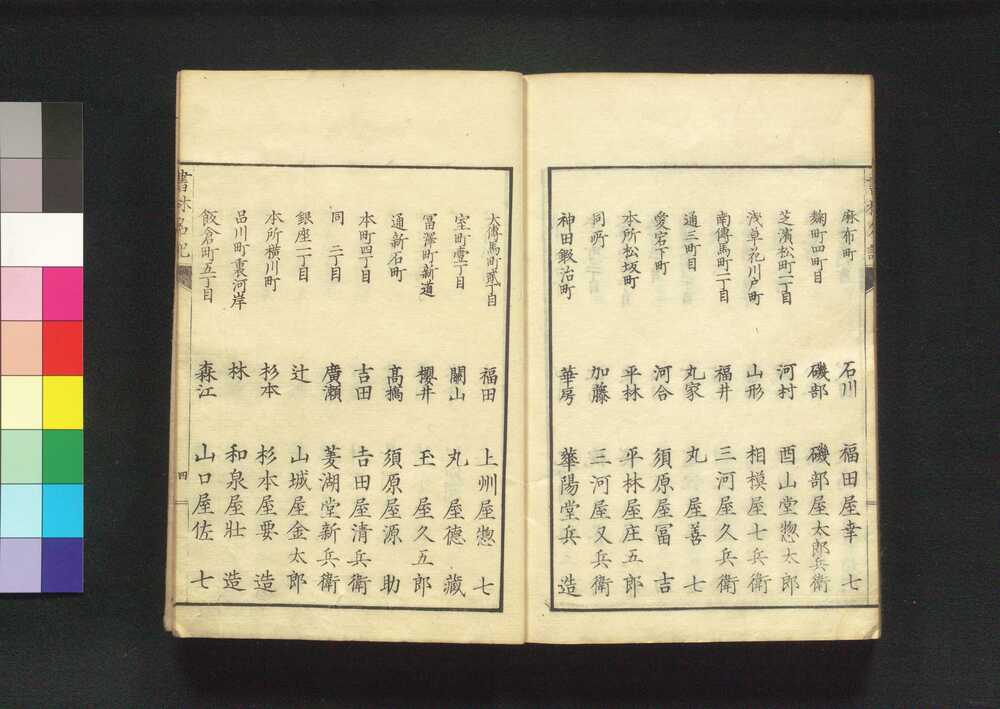 麻布町　石川　福田屋幸七
麹町四町目　磯部　磯部屋太郎兵衛
芝濱松町二丁目　河村　酉山堂惣太郎
浅草花川戸町　山形　相模屋七兵衛
南傳馬町二丁目　福井　三河屋久兵衛
通三町目　丸家　丸屋善七
愛宕下町　河合　須原屋冨吉
本所松坂町　平林　平林屋庄五郎
同所　加藤　三河屋又兵衛
神田鍛冶町　華房　華陽堂兵造
大傳馬町貳丁目　福田　上州屋惣七
室町壹丁目　關山　丸屋德藏
冨澤町新道　櫻井　玉屋久五郎
通新石町　髙橋　須原屋源助
本町四丁目　吉田　吉田屋清兵衛
同　二丁目　廣瀬　菱湖堂新兵衛
銀座二丁目　辻　山城屋金太郎
本所横川町　杉本　杉本屋要造
品川町裏河岸　林　和泉屋壯造
飯倉町五丁目　森江　山口屋佐七
書林名記
四